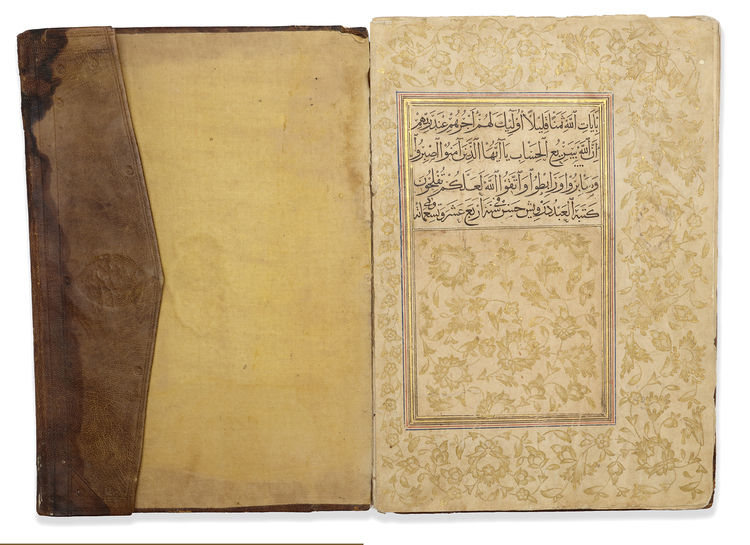 بآيات الله ثمنا قليلا أولئك لهم أجرهم عند ربهم
ان الله سريع الحساب يا أيها الذين آمنوا اصبروا
وصابروا ورابطوا واتقوا الله لعلكم تفلحون
كتبه العبد درويش حسن في سنة أربع عشر وتسعمائة